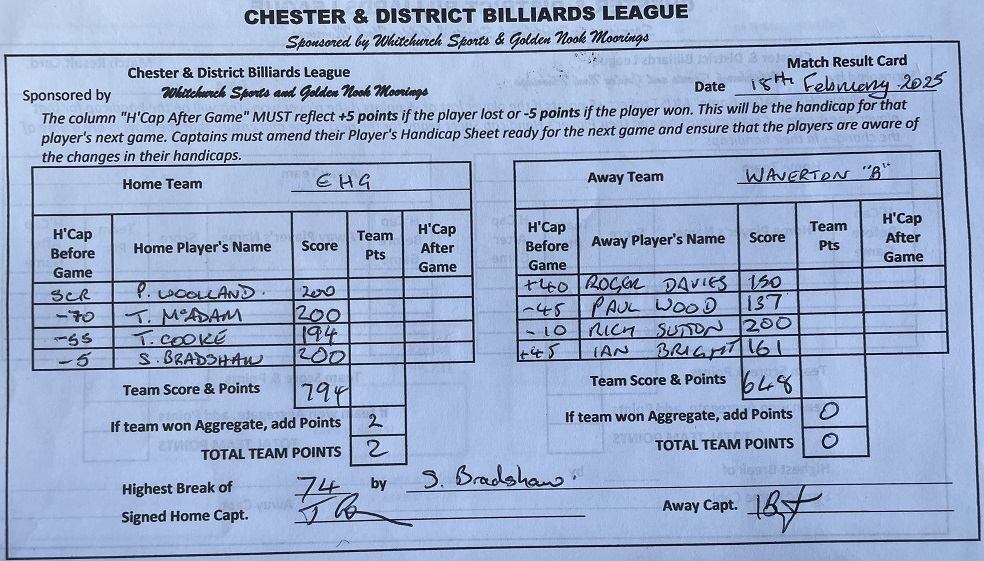 CHESTER & DISTRICT BILLIARDS LEAGUE
Sponsored by Whitchurch Sports & Golden Nook Moorings
Chester & District Billiards League
Match Result Card
Sponsored by Whitchurch Sports and Golden Nook Moorings
Date 18TH February 2025
The column "H'Cap After Game" MUST reflect +5 points if the player lost or -5 points if the player won. This will be the handicap for that
player's next game. Captains must amend their Player's Handicap Sheet ready for the next game and ensure that the players are aware of
the changes in their handicaps.
Home Team EHG
Away Team WAVERTON "B"
H'Cap Before Game Home Player's Name Score Team Pts H'Cap After Game
SCR P. WOOLLAND. 200
-70 T. McADAM 200
-55 T. COOKE 194
-5 S. BRADSHAW 200
Team Score & Points 794
If team won Aggregate, add Points 2
TOTAL TEAM POINTS 2
H'Cap Before Game Away Player's Name Score Team Pts H'Cap After Game
+40 ROGER DAVIES 150
-45 PAUL WOOD 137
-10 RICH SUTTON 200
+45 IAN BRIGHT 161
Team Score & Points 648
If team won Aggregate, add Points 0
TOTAL TEAM POINTS 0
Highest Break of 74 by S. Bradshaw.
Signed Home Capt.
Away Capt.